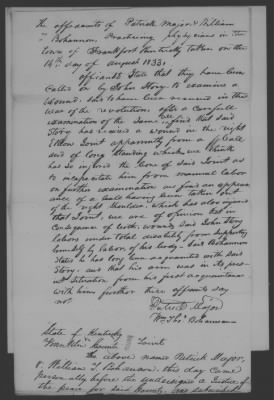 The affidavits of Patrick Major & William
Bohannon Practising physicians in the
town of Frankfort Kentucky taken on the
14th day of August 1833.
Affiants State that they have been
Called on by John Story to examine a
wound, said to have been received in the
War of the revolution, after a Carefull
examination of the Same find that said
Story has received a wound in the right
Elbow Joint apparently from a Ball
and of long Standing which we think
has so injured the Bone of said Joint as
to incapacitate him from manual labor
on further examination we find an appear
ance of a ball having been taken
of the right Shoulder which has also injured
that Joint, we are of opinion that in
Consequence of both wounds, said John Story
labors under total disability from supporting
himself by labor of his body. Said Bohannon
States he has long been acquainted with said
Story. and that his arm was in its pres
ent Situation from his first acquaintance
with him further these affiants say
not.
Patrick Major
Wm Thos Bohannon
State of Kentucky
Franklin County
The above name Patrick Major,
& William T. Bohannon this day came
personally before the undersigned a Justice of
the peace for said County